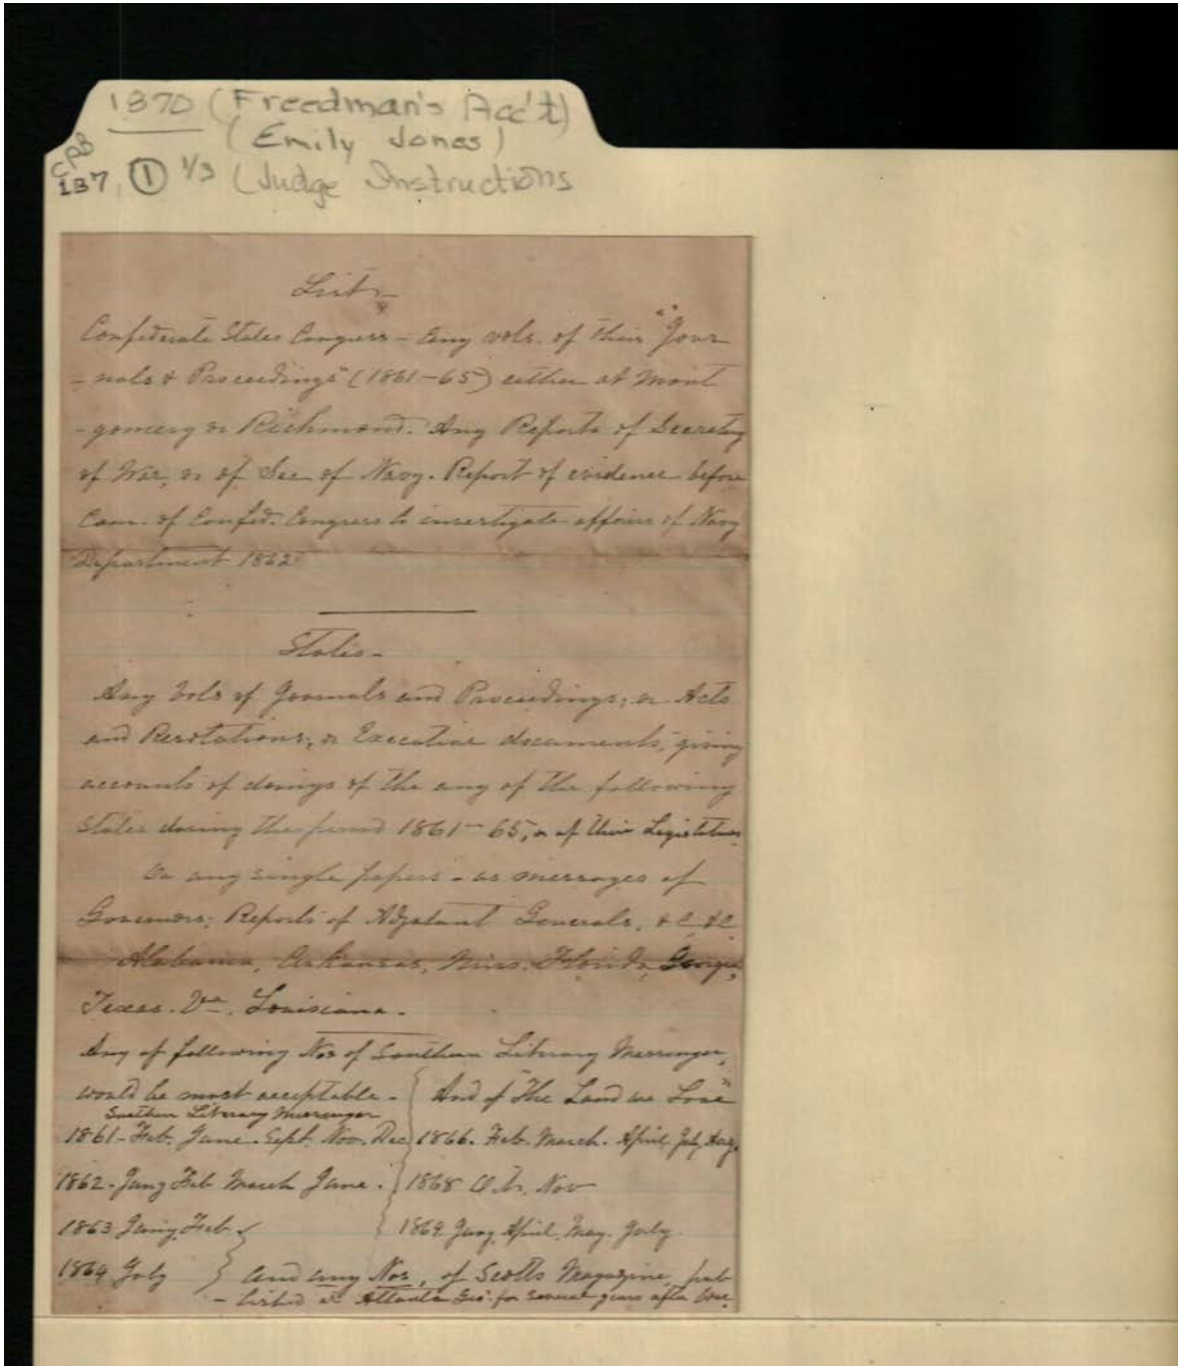 1870 (Freedman's Acc't)
(Emily Jones)
CPB
137 ① 1/3 (Judge Instructions
List -
Confederate States Congress - Any vols. of their "Jour
- nals & Proceedings" (1861-65) either at Mont
- gomery or Richmond. Any Reports of Secretary
of War, or of Sec of Navy. Report of evidence before
Com. of Confed. Congress to investigate affairs of Navy
Department 1862
States -
Any Vols of Journals and Proceedings; or Acts
and Resolutions; or Executive documents, giving
accounts of doings of the any of the following
States during the period 1861-65, or of their Legislatures
Or any single papers - as messages of
Governors; Reports of Adjutant Generals, &C &C
Alabama, Arkansas, Miss. Florida, Georgia,
Texas. Va. Louisiana.
Any of following Nos of Southern Literary Messenger,
would be most acceptable - And of "The Land we Love"
Southern Literary Messenger
1861 - Feb. June. Sept. Nov. Dec 1866. Feb. March. April, July, Aug.
1862 - Jany Feb March June. 1868 Nov
1863 Jany, Feb. 1869 Jany, April, May. July
1864 July and any Nos, of Scotts Magazine, pub
- lished at Atlanta Geo. for several years after War.